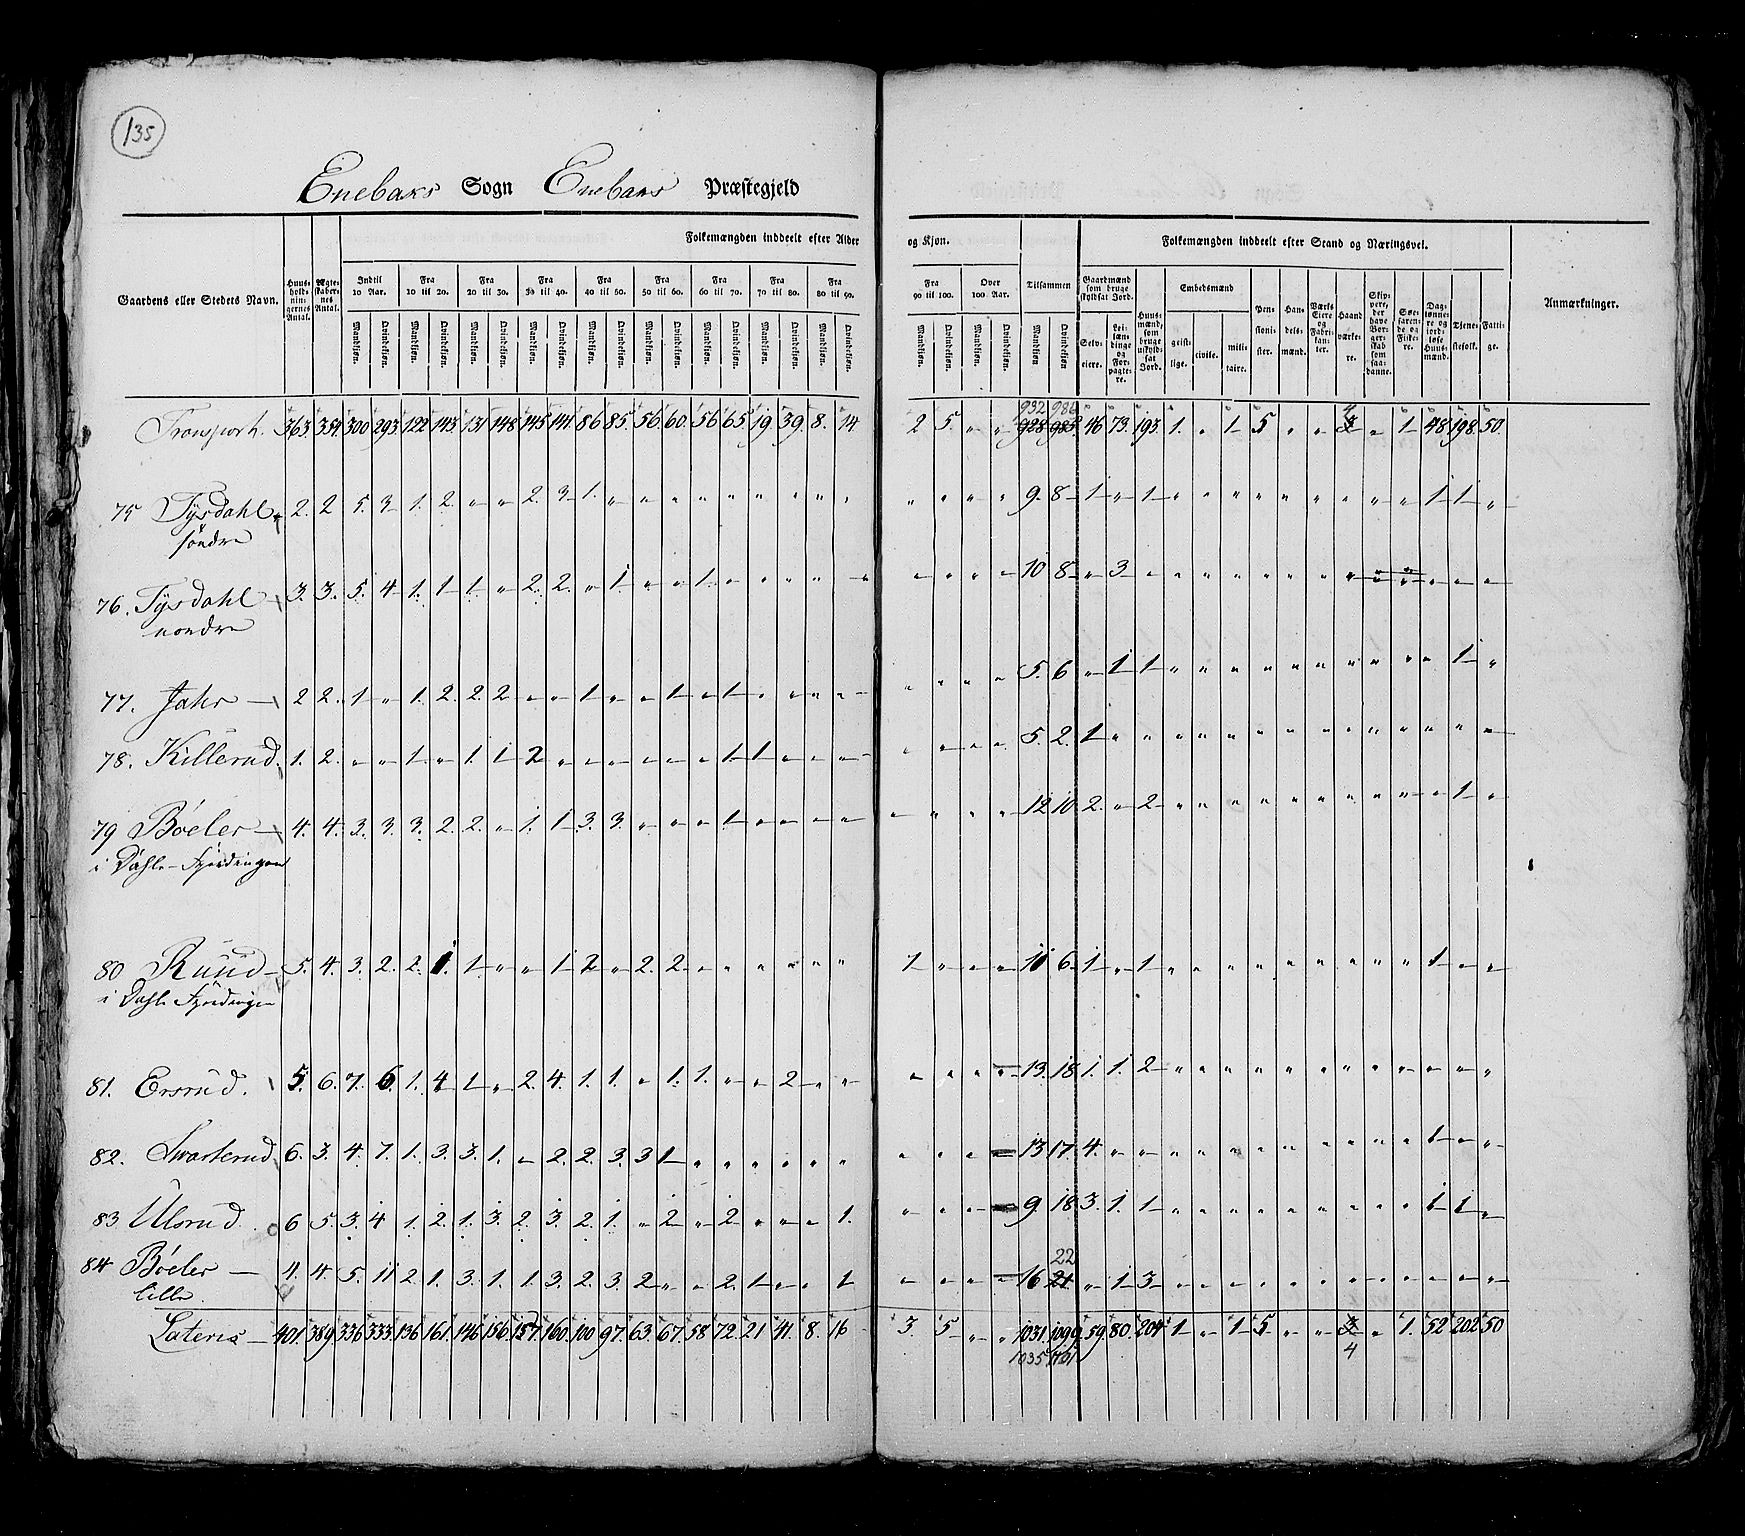 135
Enebaks Sogn Enebaks Præstegjeld
Folkemængden inddeelt efter Alder og Kjøn. Folkemængden inddeelt efter Stand og Næringsvei.
Gaardens eller Stedets Navn. Huus-holdnin-gernes Antal. Ægte-skaber-nes Antal. Indtil 10 Aar. Fra 10 til 20. Fra 20 til 30. Fra 30 til 40. Fra 40 til 50. Fra 50 til 60. Fra 60 til 70. Fra 70 til 80. Fra 80 til 90. Fra 90 til 100. Over 100 Aar. Tilsammen Gaardmænd som bruge skyldsat Jord. Huus-mænd, som bruge uskyld-sat Jord. Embedsmænd Pen-sioni-ster. Han-dels-mænd. Værks Eiere og Fabri-kanter. Haand værke-re. Skip-pere, der have Bor-ger-skab som saa-danne. Søe-faren-de og Fiske-re. Dag-lønne-re og jord-løse Huus-mænd. Tjene-stefolk. Fatti-ge. Anmærkninger.
Mandkjøn. Qvindekjøn. Mandkjøn. Qvindekjøn. Mandkjøn. Qvindekjøn. Mandkjøn. Qvindekjøn. Mandkjøn. Qvindekjøn. Mandkjøn. Qvindekjøn. Mandkjøn. Qvindekjøn. Mandkjøn. Qvindekjøn. Mandkjøn. Qvindekjøn. Mandkjøn. Qvindekjøn. Mandkjøn. Qvindekjøn. Mandkjøn. Qvindekjøn. Selv-eiere. Lei-læn-dinge og For-pagte-re. geist-lige. civile. mili-taire.
932 986 4
Transport. 363. 354. 300 293. 122 143. 131 148 145 141. 86 85. 56. 60. 56 65. 19 39. 8. 14 2 5. " " 928 985 46 73. 193. 1. " 1 5 " " 3 " 1 48 198. 50.
75 Tysdahl 2. 2 5. 3 1. 2. " " 2. 3 1. " " " " " " " " " " " " " 9 8 1 " 1 " " " " " " " " " 1 1 "
söndre
76. Tysdahl 3. 3. 5. 4. 1. 1 1. " 2. 2. " 1 " " 1 " " " " " " " " " 10 8 " 3 " " " " " " " " " " " " "
nordre
77. Jahr 2 2. 1 " 1. 2. 2. 2 " " 1 " " 1 " 1 " " " " " " " " 5. 6 " 1 1 " " " " " " " " " " 1 "
78. Killerud. 1. 2. " " 1 " 1. 1 2 " " " " " " 1 1 " " " " " " " 5. 2. 1 " " " " " " " " " " " " " "
79 Böeler 4. 4. 3. 3. 3. 2. 2. " 1. 1 3. 3. " " " 1 " " " " " " " " 12 10 2. " 2 " " " " " " " " " " 1 "
i Dahle-Fjerdingen
80 Ruud 5. 4. 3. 2. 2. 1. 1. " " 1 2 " 2. 2 " " " " " " 1 " " " 11 6 1 " 1 " " " " " " " " " 1 " "
i Dahle Fjerdingen
81. Ersrud. 5. 6. 7. 6 1. 4 1. " 2. 4. 1. 1. " 1. 1. " " 2 " " " " " " 13. 18 1. 1. 2 " " " " " " " " " " " "
82. Svarterud 6. 3. 4. 7. 1. 3. 3. 1. " 2. 2. 3. 3 1 " " " " " " " " " " 13 17. 4. " " " " " " " " " " " 1 " "
83 Ulsrud 6 5. 3. 4 1. 2. 1. 3. 2. 3. 2. 1. " 2 " 2 " " " 1. " " " " 9 18 3. 1. 1 " " " " " " " " " 1 1 "
22
84 Böeler 4. 4. 5. 11 2. 1. 3. 1. 1. 3. 2. 3. 2 " " 2. 1 " " 1 " " " " 16 21 " 1 3 " " " " " " " " " " " "
lille.
Lateris 401. 389. 336 333. 136 161. 146 156. 157. 160. 100 97. 63. 67. 58 72. 21 41. 8. 16 3. 5 " " 1031. 1099. 59. 80. 204. 1 " 1 5 " " 3 " 1. 52 202 50
1035 1101 4